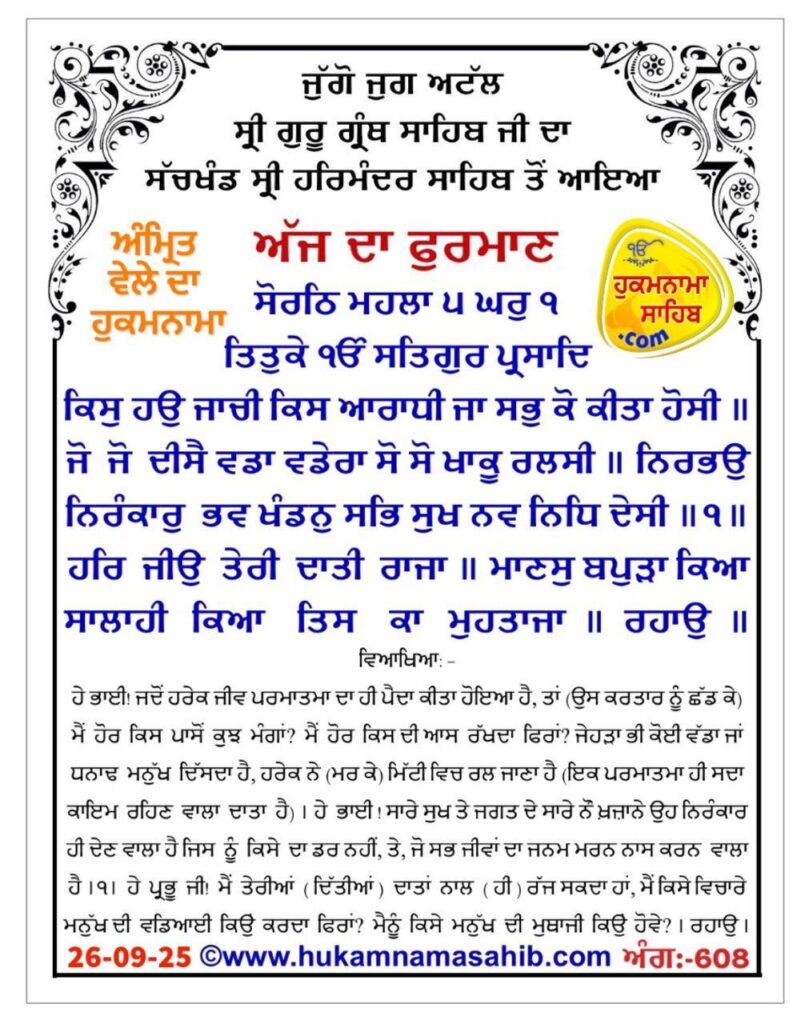 ਜੁੱਗੋ ਜੁਗ ਅਟੱਲ
ਸ੍ਰੀ ਗੁਰੂ ਗ੍ਰੰਥ ਸਾਹਿਬ ਜੀ ਦਾ
ਸੱਚਖੰਡ ਸ੍ਰੀ ਹਰਿਮੰਦਰ ਸਾਹਿਬ ਤੋਂ ਆਇਆ
ਅੰਮ੍ਰਿਤ
ਵੇਲੇ ਦਾ
ਹੁਕਮਨਾਮਾ
ਅੱਜ ਦਾ ਫੁਰਮਾਣ
ੴ
ਹੁਕਮਨਾਮਾ
ਸਾਹਿਬ
.com
ਸੋਰਠਿ ਮਹਲਾ ੫ ਘਰੁ ੧
ਤਿਤੁਕੇ ੴ ਸਤਿਗੁਰ ਪ੍ਰਸਾਦਿ
ਕਿਸੁ ਹਉ ਜਾਚੀ ਕਿਸ ਆਰਾਧੀ ਜਾ ਸਭੁ ਕੋ ਕੀਤਾ ਹੋਸੀ ॥
ਜੋ ਜੋ ਦੀਸੈ ਵਡਾ ਵਡੇਰਾ ਸੋ ਸੋ ਖਾਕੂ ਰਲਸੀ ॥ ਨਿਰਭਉ
ਨਿਰੰਕਾਰੁ ਭਵ ਖੰਡਨੁ ਸਭਿ ਸੁਖ ਨਵ ਨਿਧਿ ਦੇਸੀ ॥੧॥
ਹਰਿ ਜੀਉ ਤੇਰੀ ਦਾਤੀ ਰਾਜਾ ॥ ਮਾਣਸੁ ਬਪੁੜਾ ਕਿਆ
ਸਾਲਾਹੀ ਕਿਆ ਤਿਸ ਕਾ ਮੁਹਤਾਜਾ ॥ ਰਹਾਉ ॥
ਵਿਆਖਿਆ: -
ਹੇ ਭਾਈ! ਜਦੋਂ ਹਰੇਕ ਜੀਵ ਪਰਮਾਤਮਾ ਦਾ ਹੀ ਪੈਦਾ ਕੀਤਾ ਹੋਇਆ ਹੈ, ਤਾਂ (ਉਸ ਕਰਤਾਰ ਨੂੰ ਛੱਡ ਕੇ)
ਮੈਂ ਹੋਰ ਕਿਸ ਪਾਸੋਂ ਕੁਝ ਮੰਗਾਂ? ਮੈਂ ਹੋਰ ਕਿਸ ਦੀ ਆਸ ਰੱਖਦਾ ਫਿਰਾਂ? ਜੇਹੜਾ ਭੀ ਕੋਈ ਵੱਡਾ ਜਾਂ
ਧਨਾਢ ਮਨੁੱਖ ਦਿੱਸਦਾ ਹੈ, ਹਰੇਕ ਨੇ (ਮਰ ਕੇ) ਮਿੱਟੀ ਵਿਚ ਰਲ ਜਾਣਾ ਹੈ (ਇਕ ਪਰਮਾਤਮਾ ਹੀ ਸਦਾ
ਕਾਇਮ ਰਹਿਣ ਵਾਲਾ ਦਾਤਾ ਹੈ) । ਹੇ ਭਾਈ ! ਸਾਰੇ ਸੁਖ ਤੇ ਜਗਤ ਦੇ ਸਾਰੇ ਨੌ ਖ਼ਜ਼ਾਨੇ ਉਹ ਨਿਰੰਕਾਰ
ਹੀ ਦੇਣ ਵਾਲਾ ਹੈ ਜਿਸ ਨੂੰ ਕਿਸੇ ਦਾ ਡਰ ਨਹੀਂ, ਤੇ, ਜੋ ਸਭ ਜੀਵਾਂ ਦਾ ਜਨਮ ਮਰਨ ਨਾਸ ਕਰਨ ਵਾਲਾ
ਹੈ ।੧। ਹੇ ਪ੍ਰਭੂ ਜੀ! ਮੈਂ ਤੇਰੀਆਂ (ਦਿੱਤੀਆਂ) ਦਾਤਾਂ ਨਾਲ (ਹੀ) ਰੱਜ ਸਕਦਾ ਹਾਂ, ਮੈਂ ਕਿਸੇ ਵਿਚਾਰੇ
ਮਨੁੱਖ ਦੀ ਵਡਿਆਈ ਕਿਉ ਕਰਦਾ ਫਿਰਾਂ? ਮੈਨੂੰ ਕਿਸੇ ਮਨੁੱਖ ਦੀ ਮੁਥਾਜੀ ਕਿਉਂ ਹੋਵੇ? । ਰਹਾਉ ।
26-09-25 ©www.hukamnamasahib.com ਅੰਗ:-608